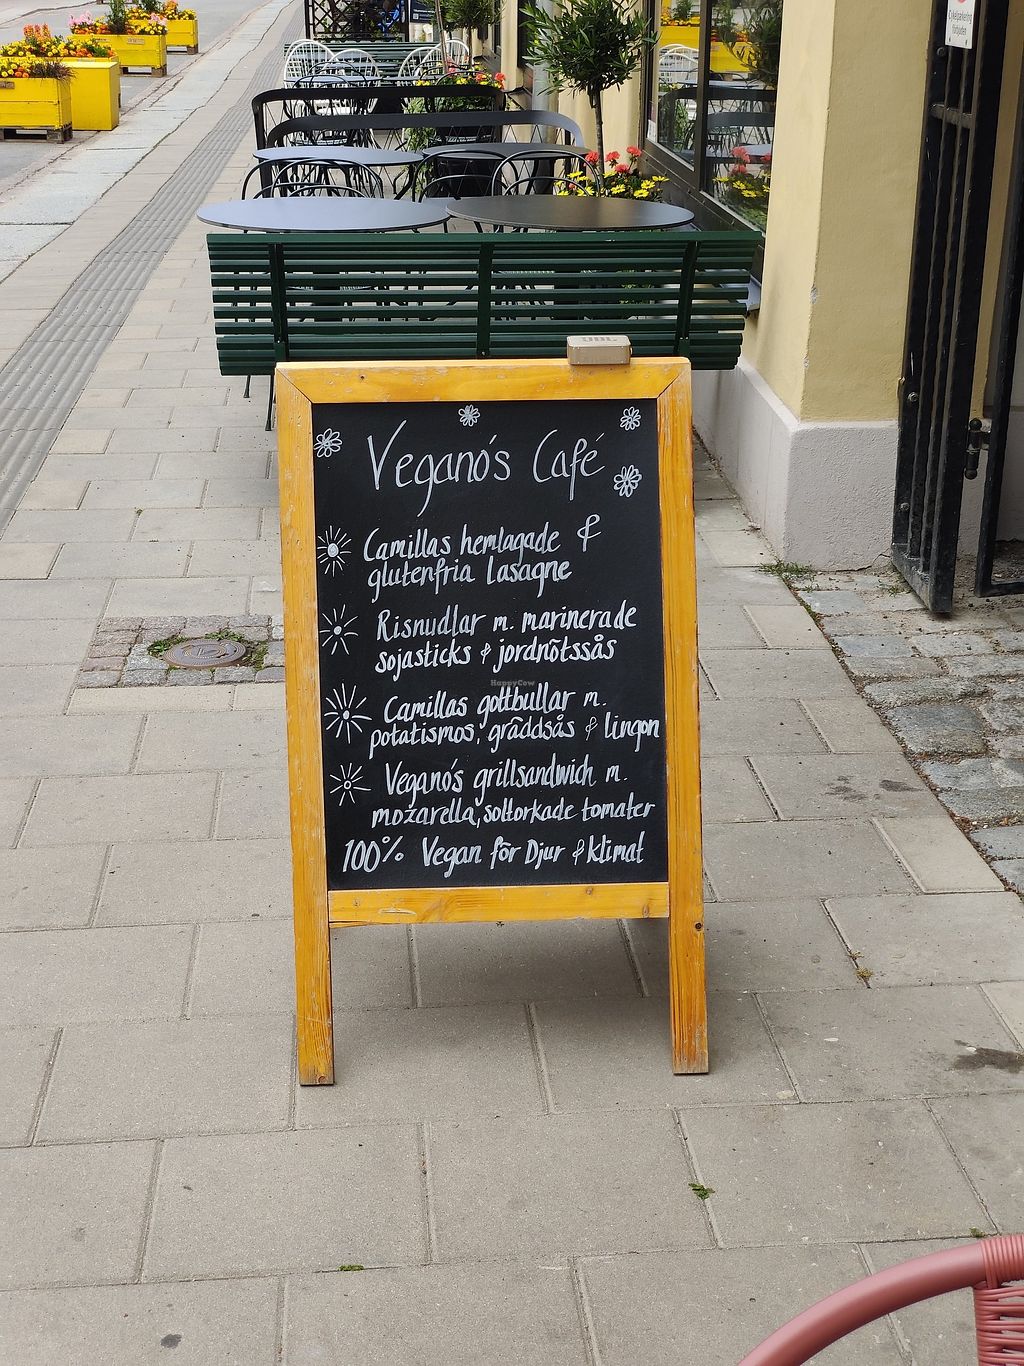 Cykelparkering
förbjuden
JBL
Veganó's Café
Camillas hemlagade &
glutenfria Lasagne
Risnudlar m. marinerade
sojasticks & jordnötssås
HappyCow
Camillas gottbullar m.
potatismos, gräddsås & lingon
Veganó's grillsandwich m.
mozarella, soltorkade tomater
100% Vegan för Djur & Klimat